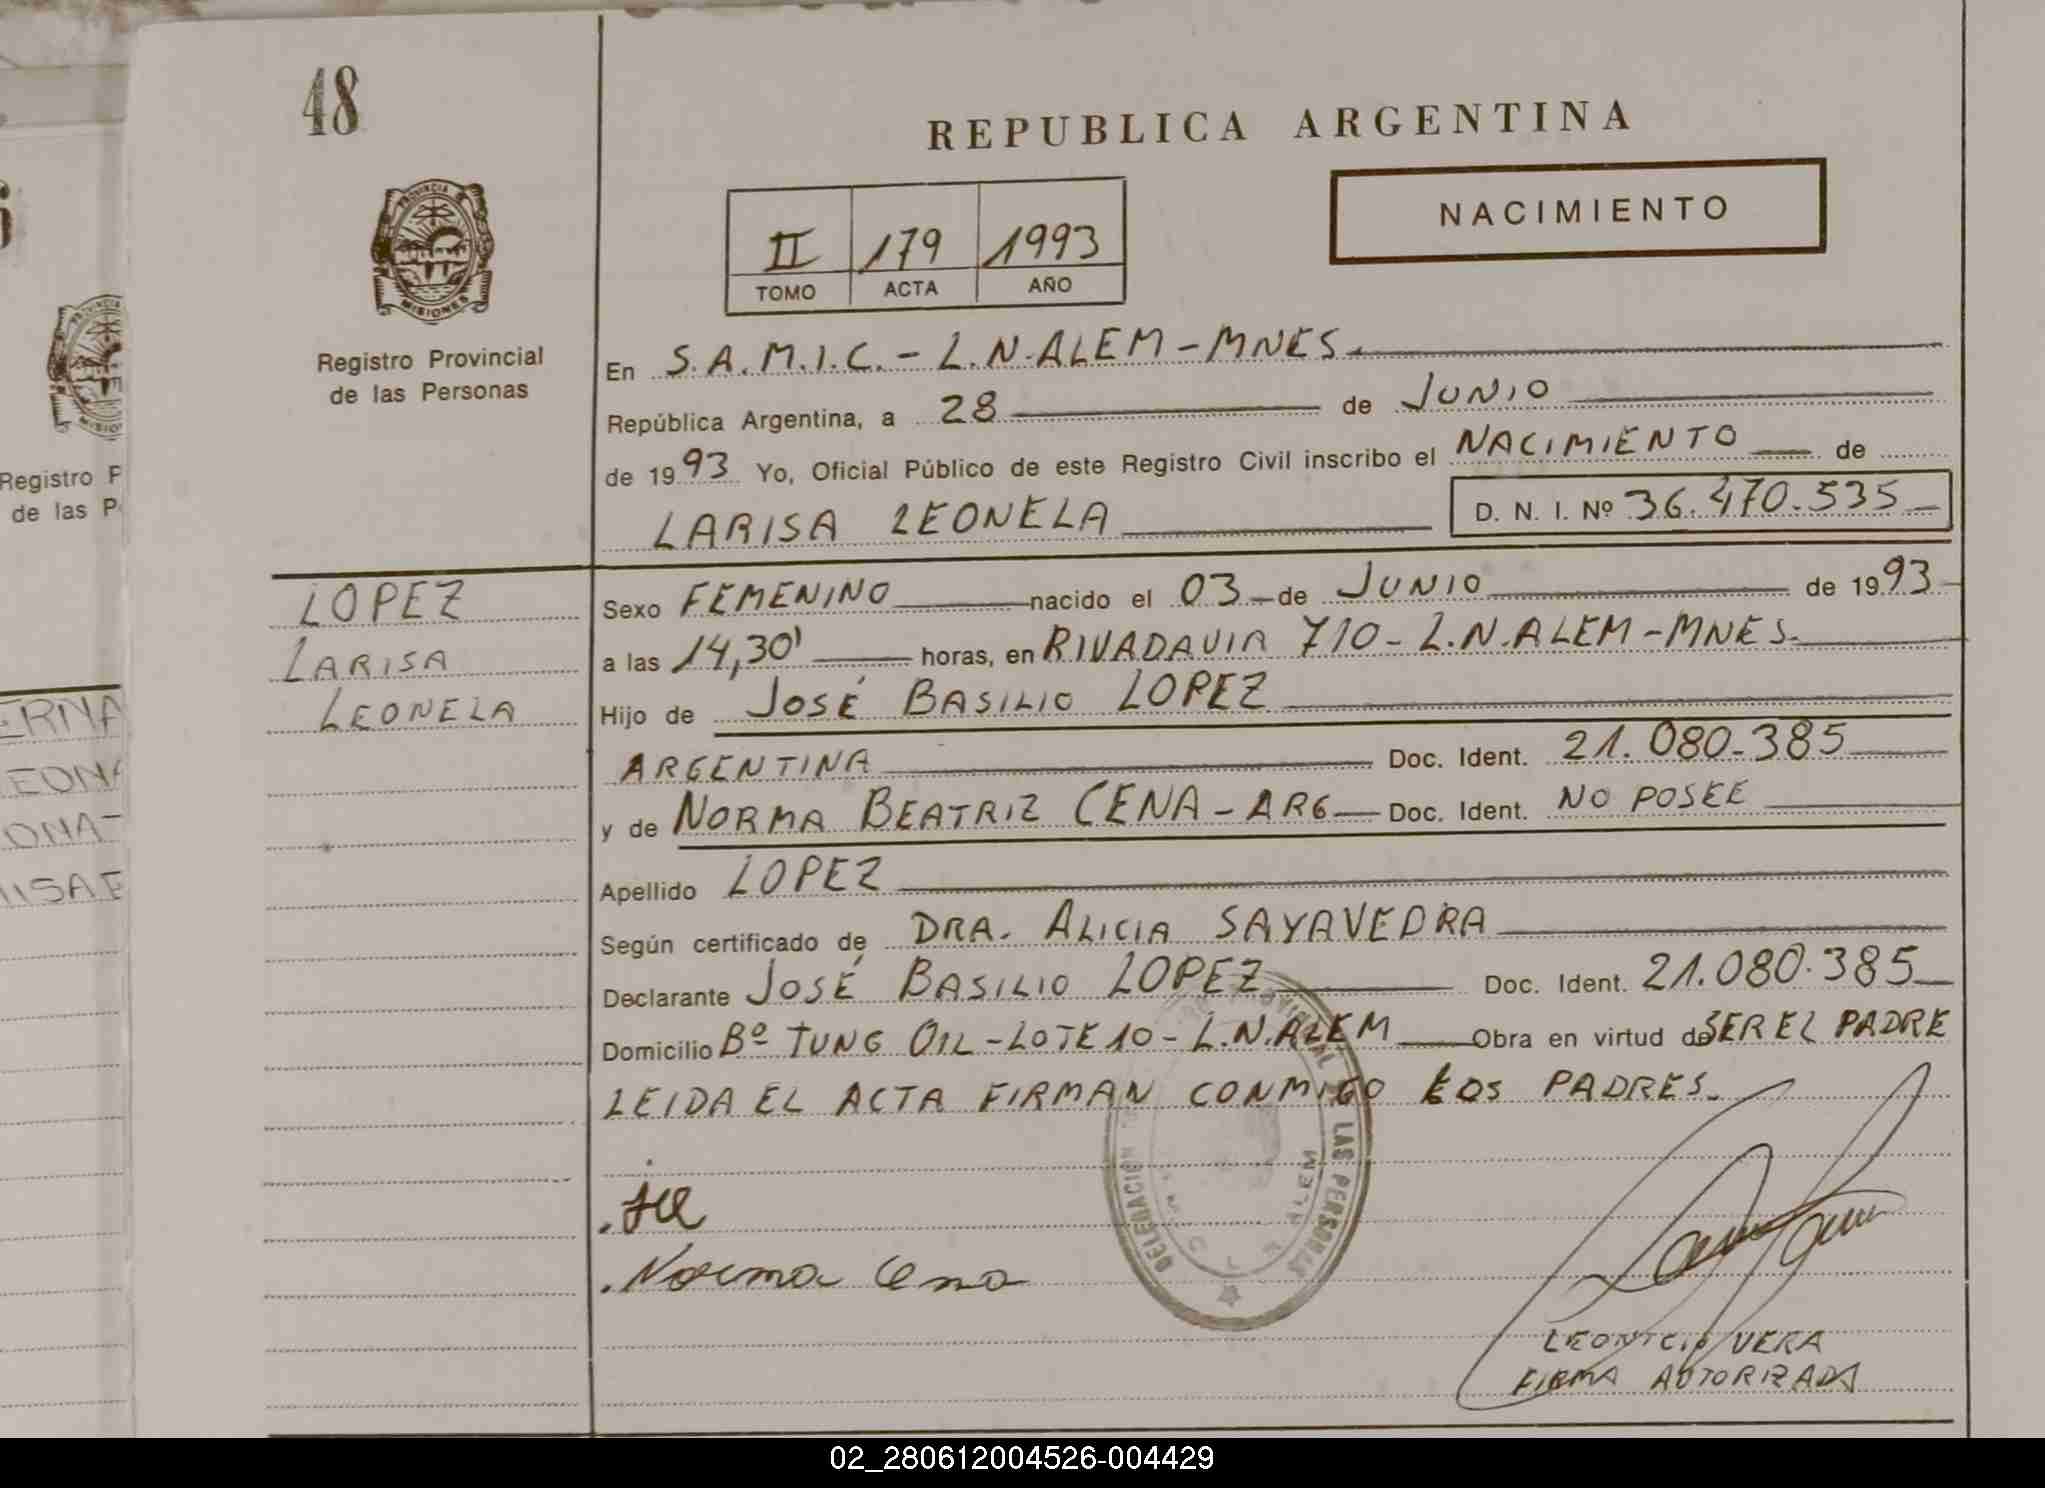 48
REPUBLICA ARGENTINA
NACIMIENTO
II 179 1993
TOMO ACTA AÑO
PROVINCIA
MISIONES
Registro Provincial
de las Personas
En S.A.M.I.C. - L.N.ALEM - MNES.
República Argentina, a 28 de JUNIO
de 1993 Yo, Oficial Público de este Registro Civil inscribo el NACIMIENTO de
LARISA LEONELA D. N. I. Nº 36.470.535
LOPEZ
LARISA
LEONELA
Sexo FEMENINO nacido el 03 de JUNIO de 1993
a las 14,30' horas, en RIVADAVIA 710 - L.N.ALEM - MNES.
Hijo de JOSÉ BASILIO LOPEZ
ARGENTINA Doc. Ident. 21.080.385
y de NORMA BEATRIZ CENA - ARG Doc. Ident. NO POSEE
Apellido LOPEZ
Según certificado de DRA. ALICIA SAYAVEDRA
Declarante JOSÉ BASILIO LOPEZ Doc. Ident. 21.080.385
Domicilio Bº TUNG OIL - LOTE 10 - L.N.ALEM Obra en virtud de SER EL PADRE
LEIDA EL ACTA FIRMAN CONMIGO LOS PADRES.
Norma Cena
DELEGACION LAS PERSONAS
ALEM
LEONICIO VERA
FIRMA AUTORIZADA
Registro P
de las P
ERNA
EONA
ONAT
02_280612004526-004429